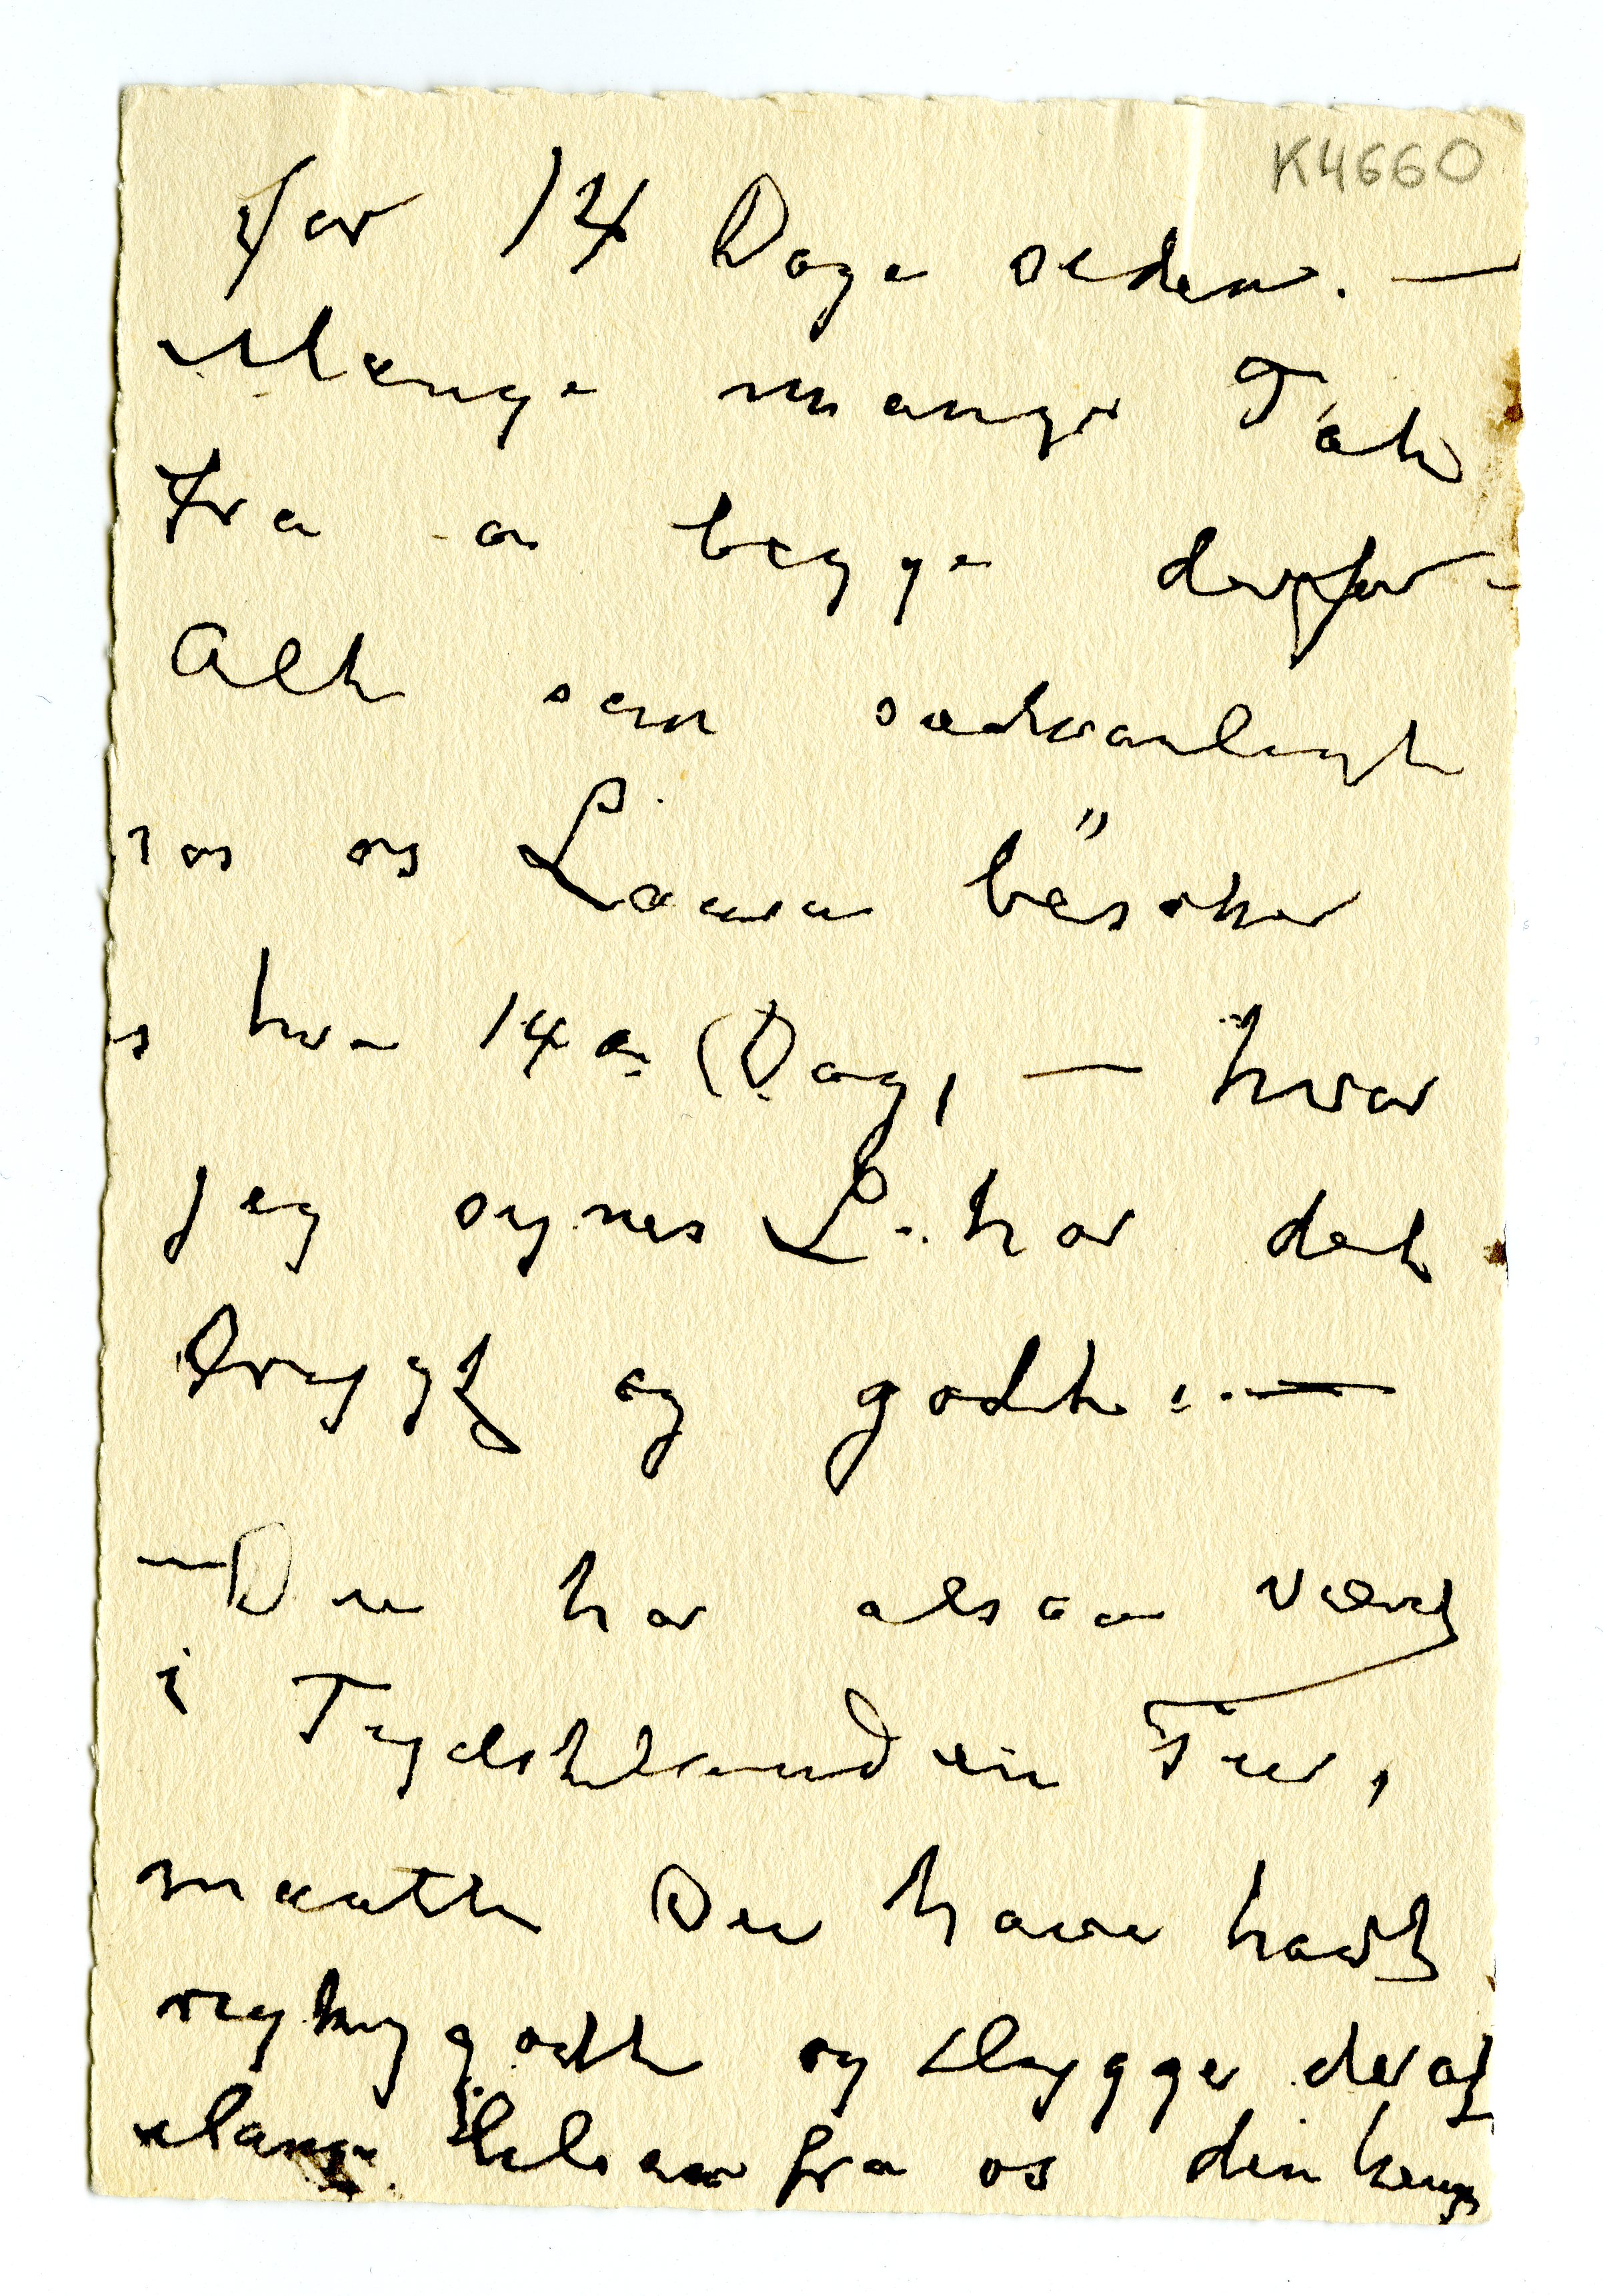 K4660
For 14 Dage siden. —
Mange mange Tak
fra os begge derfor –
Alt som sædvanligt
hos os Laura besøker
os hver 14de Dag, — hvor
jeg synes L. har det
trygt og godt. —
— Du har altsaa været
i Tydskland en Tur,
maatte Du have havt
rigtig godt og Hygge deraf
Mange Hilsen fra os din heng